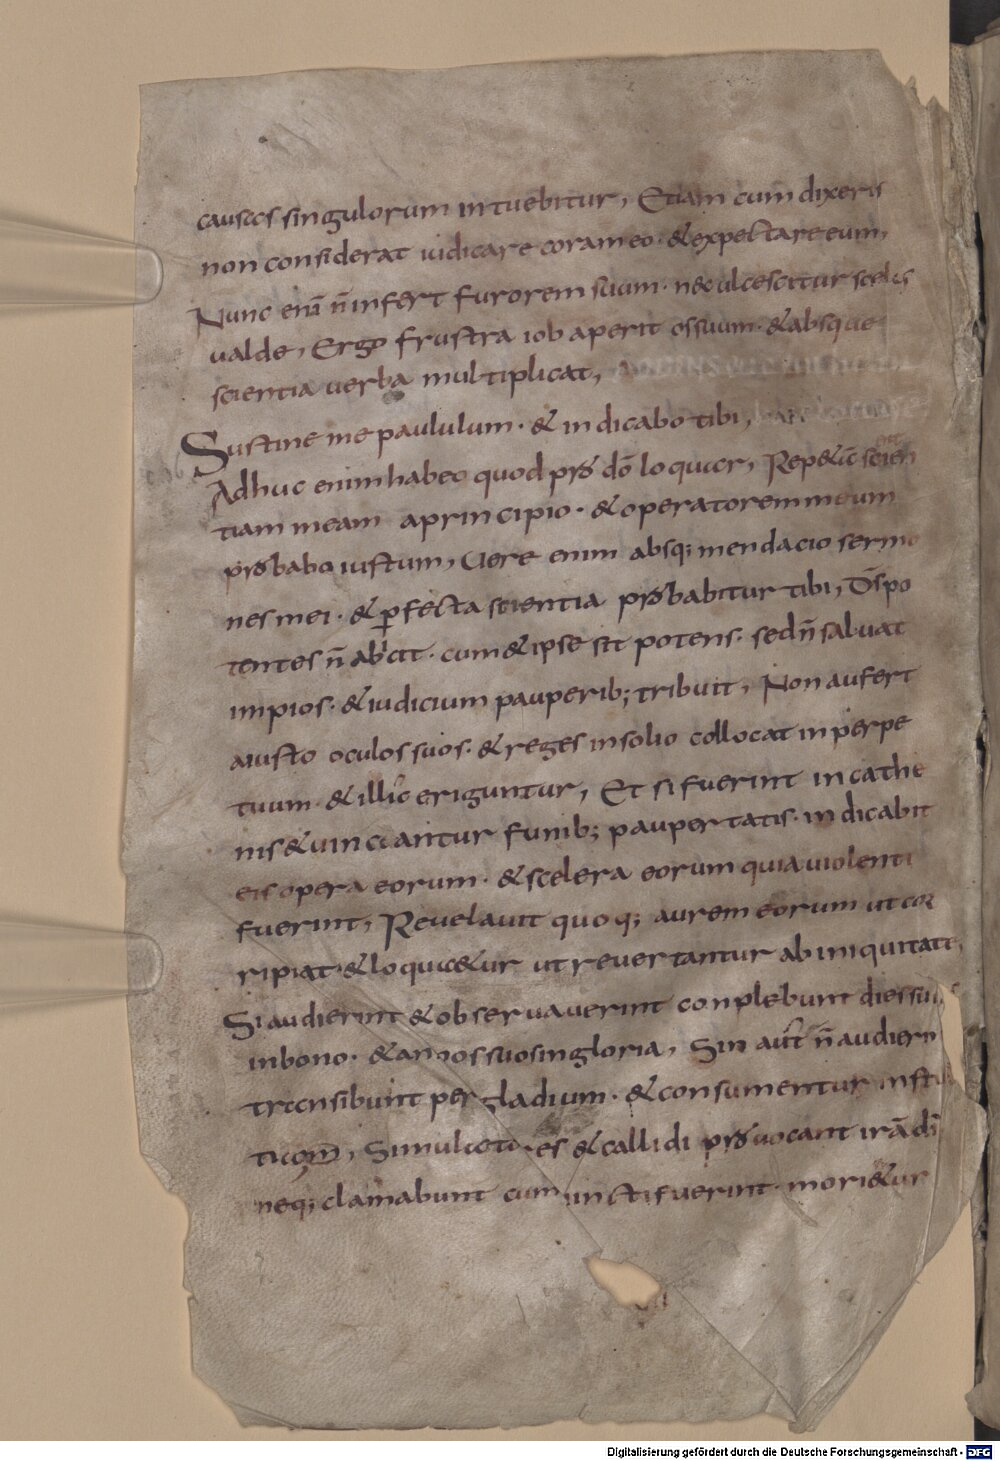 causas singulorum intuebitur, Etiam cum dixeris
non considerat iudicare coram eo · & expectare eum,
Nunc eni̅ n̅ infert furorem suum · nec ulcescitur scelus
ualde, Ergo frustra iob aperit ossuum · & absque
scientia uerba multiplicat,
Sustine me paululum · & indicabo tibi,
Adhuc enim habeo quod pro do̅ loquar, Rep&a̅ scien
tiam meam aprincipio · & operatorem meum
probabo iustum, Uere enim absq; mendacio sermo
nes mei · & p̲fecta scientia probabitur tibi, D̅s po
tentes n̅ abicit · cum & ipse sit potens · sed n̅ saluat
impios · & iudicium pauperib; tribuit, Non aufert
aiusto oculos suos · & reges insolio collocat in perpe
tuum · & illic eriguntur, Et si fuerint in cathe
nis & uinciantur funib; paupertatis · indicabit
eis opera eorum · & scelera eorum quia uiolenti
fuerint, Reuelauit quoq; aurem eorum ut cor
ripiat · & loquac&ur ut reuertantur ab iniquitate,
Si audierint & obseruauerint conplebunt dies suos
inbono · & annos suos ingloria, Sin aut̅ n̅ audierin
transibunt per gladium · & consumentur instul
Simulatores & callidi prouocant ira̅ di̅
neq; clamabunt cum uincti fuerint · mori&ur
Digitalisierung gefördert durch die Deutsche Forschungsgemeinschaft - DFG